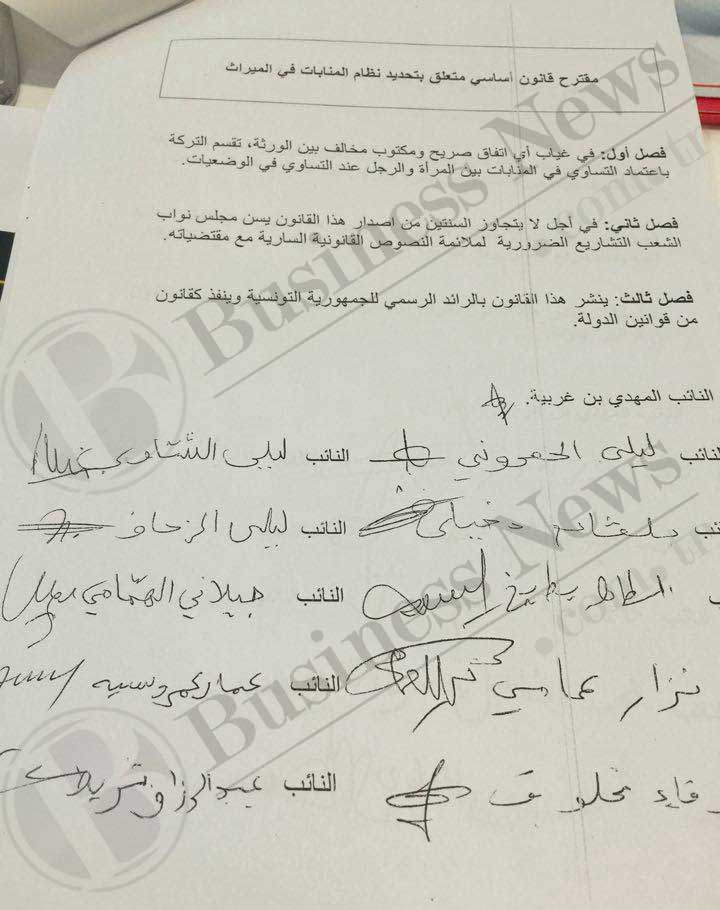 مقترح قانون أساسي متعلق بتحديد نظام المنابات في الميراث
فصل أول: في غياب أي اتفاق صريح ومكتوب مخالف بين الورثة، تقسم التركة
باعتماد التساوي في المنابات بين المرأة والرجل عند التساوي في الوضعيات.
فصل ثاني: في أجل لا يتجاوز السنتين من اصدار هذا القانون يسن مجلس نواب
الشعب التشاريع الضرورية لملائمة النصوص القانونية السارية مع مقتضياته.
فصل ثالث: ينشر هذا القانون بالرائد الرسمي للجمهورية التونسية وينفذ كقانون
من قوانين الدولة.
النائب المهدي بن غربية.
النائب ليلى الحمروني النائب ليلى الشتاوي
دخيلي النائب ليلى الزحاف
الطاهر بطيخ النائب جيلاني الهمّامي
نزار عمامي النائب عمار عمروسية
وفاء مخلوف النائب عبد الرزاق شريط
Business News
.com.tn
Business News
.com.tn